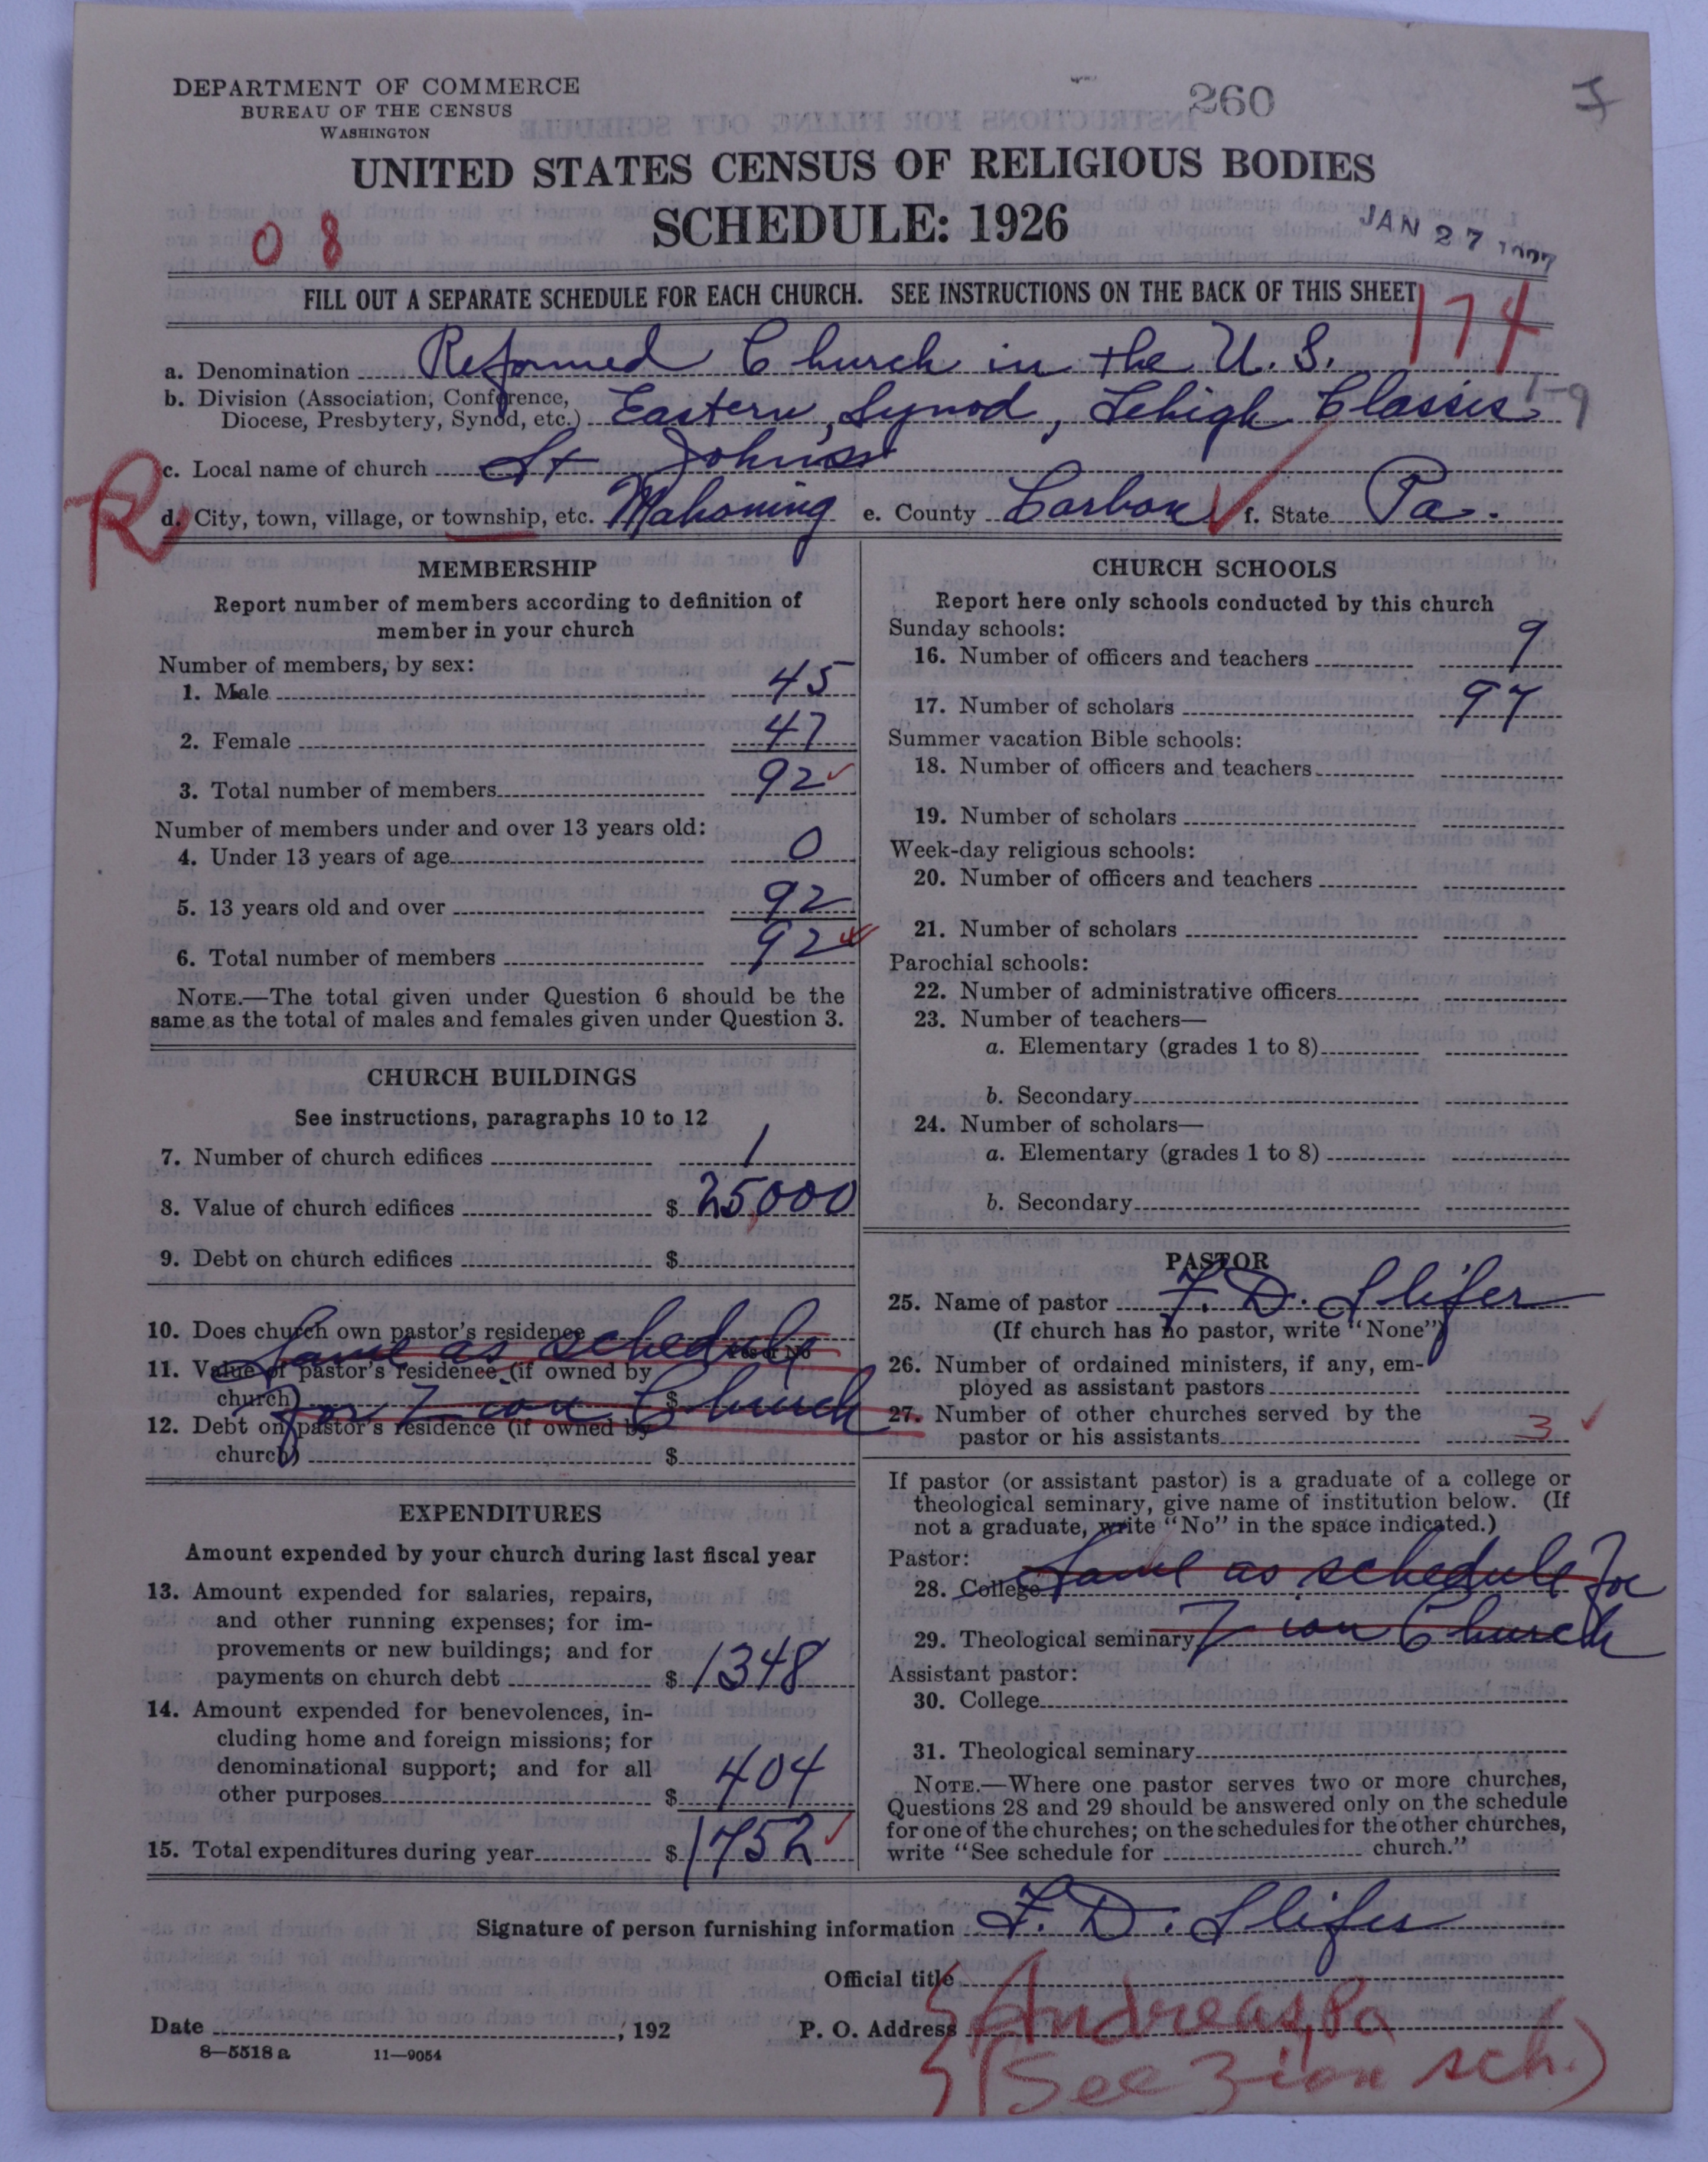 DEPARTMENT OF COMMERCE
BUREAU OF THE CENSUS
WASHINGTON
260
UNITED STATES CENSUS OF RELIGIOUS BODIES
SCHEDULE: 1926
JAN 27 1927
08
FILL OUT A SEPARATE SCHEDULE FOR EACH CHURCH. SEE INSTRUCTIONS ON THE BACK OF THIS SHEET
174
a. Denomination Reformed Church in the U. S.
1-9
b. Division (Association, Conference,
Diocese, Presbytery, Synod, etc.) Eastern Synod, Lehigh Classis
c. Local name of church St Johns
R
d. City, town, village, or township, etc. Mahoning e. County Carbon f. State Pa.
MEMBERSHIP
Report number of members according to definition of
member in your church
Number of members, by sex:
1. Male 45
2. Female 47
3. Total number of members 92
Number of members under and over 13 years old:
4. Under 13 years of age 0
5. 13 years old and over 92
6. Total number of members 92
NOTE.—The total given under Question 6 should be the
same as the total of males and females given under Question 3.
CHURCH BUILDINGS
See instructions, paragraphs 10 to 12
7. Number of church edifices 1
8. Value of church edifices $ 25,000
9. Debt on church edifices $
10. Does church own pastor's residence
Yes or No
Same as schedule
11. Value of pastor's residence (if owned by
church) $
for Zion Church
12. Debt on pastor's residence (if owned by
church) $
EXPENDITURES
Amount expended by your church during last fiscal year
13. Amount expended for salaries, repairs,
and other running expenses; for im-
provements or new buildings; and for
payments on church debt $ 1348
14. Amount expended for benevolences, in-
cluding home and foreign missions; for
denominational support; and for all
other purposes $ 404
15. Total expenditures during year $ 1752
CHURCH SCHOOLS
Report here only schools conducted by this church
Sunday schools:
16. Number of officers and teachers 9
17. Number of scholars 97
Summer vacation Bible schools:
18. Number of officers and teachers
19. Number of scholars
Week-day religious schools:
20. Number of officers and teachers
21. Number of scholars
Parochial schools:
22. Number of administrative officers
23. Number of teachers—
a. Elementary (grades 1 to 8)
b. Secondary
24. Number of scholars—
a. Elementary (grades 1 to 8)
b. Secondary
PASTOR
25. Name of pastor F. D. Slifer
(If church has no pastor, write "None")
26. Number of ordained ministers, if any, em-
ployed as assistant pastors
27. Number of other churches served by the
pastor or his assistants 3
If pastor (or assistant pastor) is a graduate of a college or
theological seminary, give name of institution below. (If
not a graduate, write "No" in the space indicated.)
Pastor:
28. College Same as schedule for
29. Theological seminary Zion Church
Assistant pastor:
30. College
31. Theological seminary
NOTE.—Where one pastor serves two or more churches,
Questions 28 and 29 should be answered only on the schedule
for one of the churches; on the schedules for the other churches,
write "See schedule for church."
Signature of person furnishing information F. D. Slifer
Official title
Date , 192 P. O. Address Andreas, Pa
8—5518 a 11—9054
(See Zion sch.)